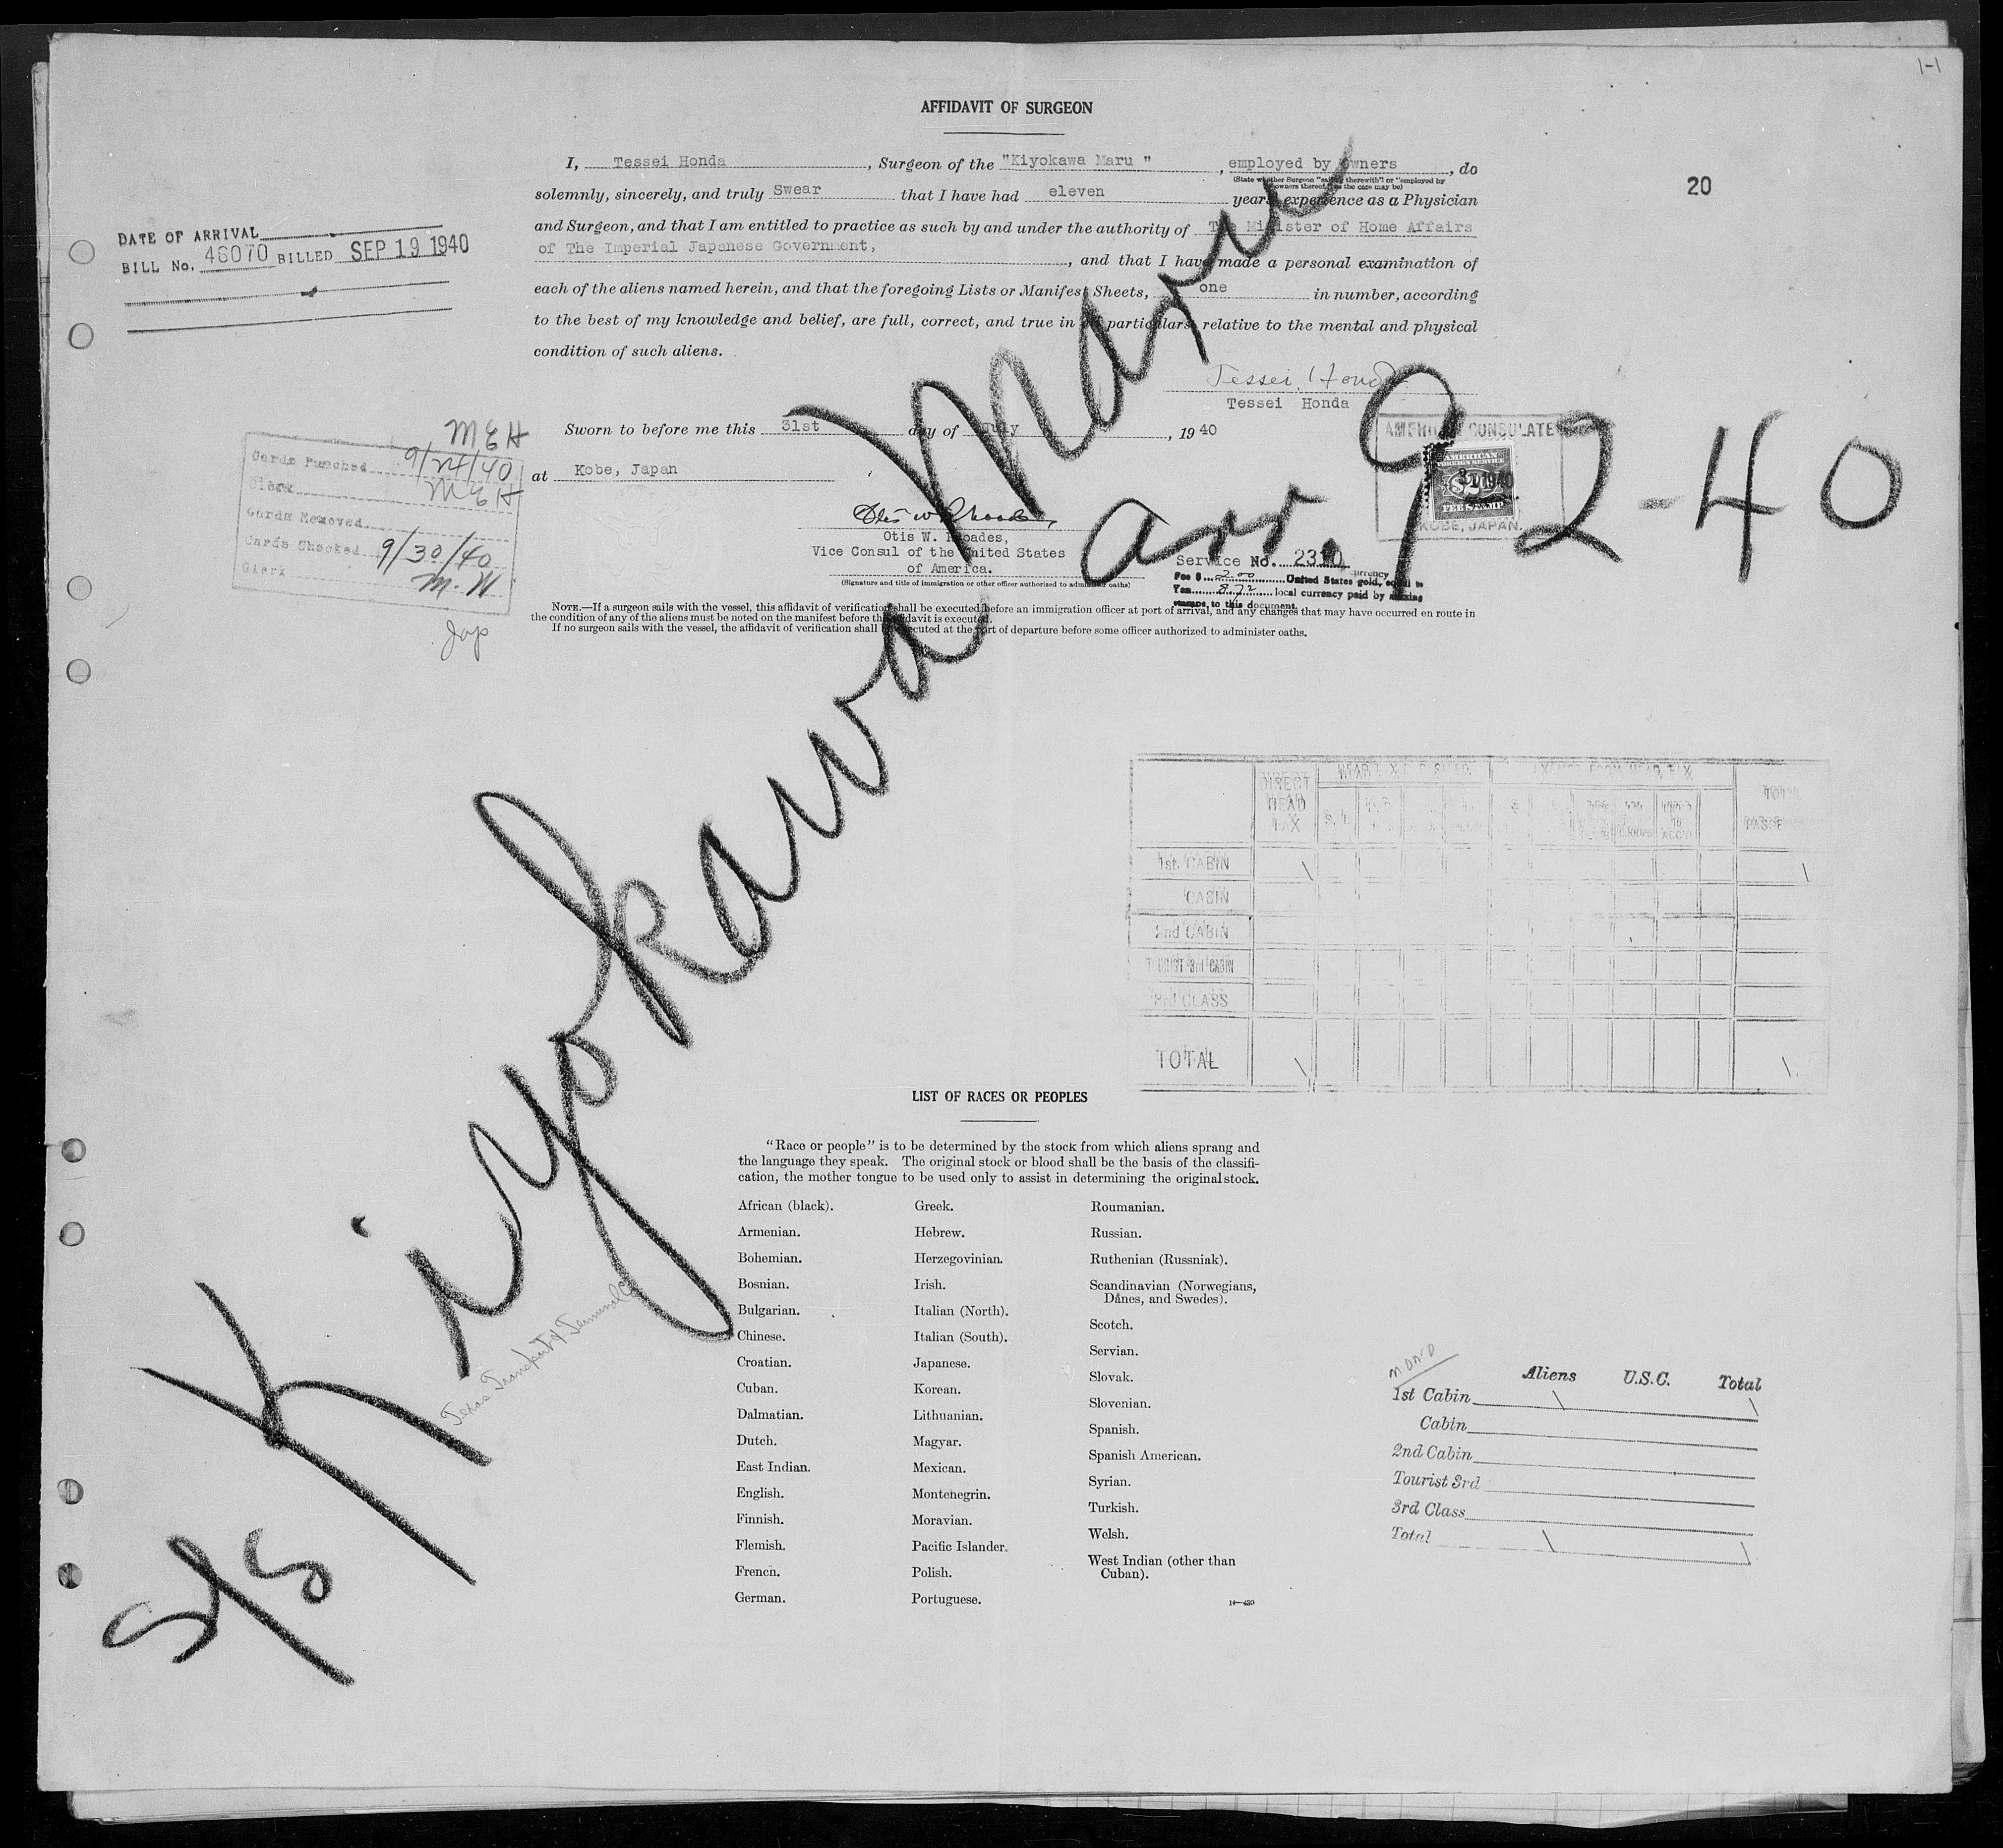 1-1
AFFIDAVIT OF SURGEON
I, Tessei Honda, Surgeon of the "Kiyokawa Maru ", employed by owners, do
(State whether Surgeon "sailing therewith" or "employed by owners thereof," as the case may be)
solemnly, sincerely, and truly Swear that I have had eleven years experience as a Physician
20
and Surgeon, and that I am entitled to practice as such by and under the authority of The Minister of Home Affairs
of The Imperial Japanese Government, , and that I have made a personal examination of
each of the aliens named herein, and that the foregoing Lists or Manifest Sheets, one in number, according
to the best of my knowledge and belief, are full, correct, and true in all particulars relative to the mental and physical
condition of such aliens.
DATE OF ARRIVAL
BILL No. 46070 BILLED SEP 19 1940
Tessei Honda
Tessei Honda
Sworn to before me this 31st day of July, 19 40
at Kobe, Japan
MEH
Cards Punched 9/24/40
Clerk MEH
Cards Removed
Cards Checked 9/30/40
Clerk M.W
Jap
AMERICAN CONSULATE
AMERICAN
FOREIGN SERVICE
1940
FEE STAMP
KOBE, JAPAN.
Otis W. Rhoades
Otis W. Rhoades,
Vice Consul of the United States
of America.
(Signature and title of immigration or other officer authorized to administer oaths)
Service No. 2310
Fee $ 2.00 United States gold, equal to
currency
Yen 8.72 local currency paid by affixing
stamps to this document.
NOTE.—If a surgeon sails with the vessel, this affidavit of verification shall be executed before an immigration officer at port of arrival, and any changes that may have occurred en route in
the condition of any of the aliens must be noted on the manifest before the affidavit is executed.
If no surgeon sails with the vessel, the affidavit of verification shall be executed at the port of departure before some officer authorized to administer oaths.
S/S Kiyokawa Maru
arr. 9-2-40
Texas Transport & Terminal Co
DIRECT HEAD TAX
TOTAL
1st. CABIN \ \
CABIN
2nd CABIN
TOURIST 3rd CABIN
3rd CLASS
TOTAL \ \
LIST OF RACES OR PEOPLES
"Race or people" is to be determined by the stock from which aliens sprang and
the language they speak. The original stock or blood shall be the basis of the classifi-
cation, the mother tongue to be used only to assist in determining the original stock.
African (black).
Armenian.
Bohemian.
Bosnian.
Bulgarian.
Chinese.
Croatian.
Cuban.
Dalmatian.
Dutch.
East Indian.
English.
Finnish.
Flemish.
French.
German.
Greek.
Hebrew.
Herzegovinian.
Irish.
Italian (North).
Italian (South).
Japanese.
Korean.
Lithuanian.
Magyar.
Mexican.
Montenegrin.
Moravian.
Pacific Islander.
Polish.
Portuguese.
Roumanian.
Russian.
Ruthenian (Russniak).
Scandinavian (Norwegians,
Danes, and Swedes).
Scotch.
Servian.
Slovak.
Slovenian.
Spanish.
Spanish American.
Syrian.
Turkish.
Welsh.
West Indian (other than
Cuban).
14—430
Aliens U.S.C. Total
1st Cabin \ \
Cabin
2nd Cabin
Tourist 3rd
3rd Class
Total \ \